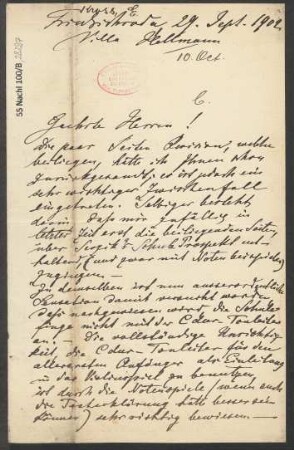 Friedrichroda 29. Sept. 1902.
Villa Hellmann
10. Oct.
55 Nachl 100/B
C.
Geehrte Herren!
Die paar Seiten Revision, welche
beiliegen, hätte ich Ihnen schon
zurückgesandt, es ist jedoch ein
sehr wichtiger Zwischenfall
eingetreten. Selbiger besteht
darin, dass mir zufällig in
letzter Zeit erst die beiliegenden Seiten
über Schule Prospekt ent-
haltend (und zwar mit Notenbeispielen)
zugingen. —
In demselben ist nun ausserordentliche
Sensation damit versucht worden
dass nachgewiesen wird, die Schule
finge nicht mit der Cdur-Tonleiter
an. — Die vollständige Unrichtig-
keit, die Cdur-Tonleiter für den
allerersten Anfänger als Einleitung
in das Violinspiel zu benutzen,
ist durch die Notenbeispiele (wenn auch
die Texterklärung hätte besser sein
können) sehr wichtig bewiesen. —